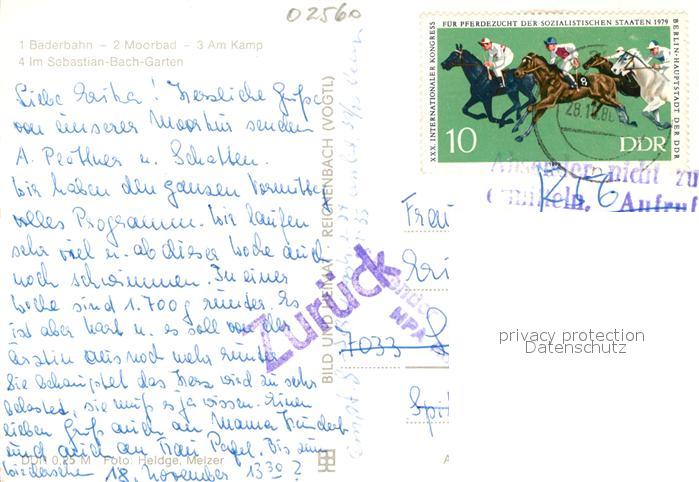 02560
1 Baderbahn – 2 Moorbad – 3 Am Kamp
4 Im Sebastian-Bach-Garten
Liebe Erika! Herzliche Grüße
von unserer Moorkur senden
A. u. Schatten.
Wir haben den ganzen Vormittag
volles Programm. Wir laufen
sehr viel u. ab dieser Woche auch
noch schwimmen. In einer
Woche sind 1.700 g runter. Es
ist aber hart u. es soll von der
Ärztin aus noch mehr runter.
Sie behauptet das Herz wird zu sehr
belastet, sie muß es ja wissen. Einen
lieben Gruß auch an Mama
und auch an Frau Pagel. Bis zum
Wiedersehn 18. November 13³⁰?
DDR 0,25 M Foto: Heldge, Melzer
BILD UND HEIMAT · REICHENBACH (VOGTL)
XXX. INTERNATIONALER KONGRESS FÜR PFERDEZUCHT DER SOZIALISTISCHEN STAATEN 1979
BERLIN-HAUPTSTADT DER DDR
10 DDR
28.10.80
Absender nicht zu
ermitteln. Aufruf
Zurück
MPA
Frau
Eri
7033
privacy protection
Datenschutz
A